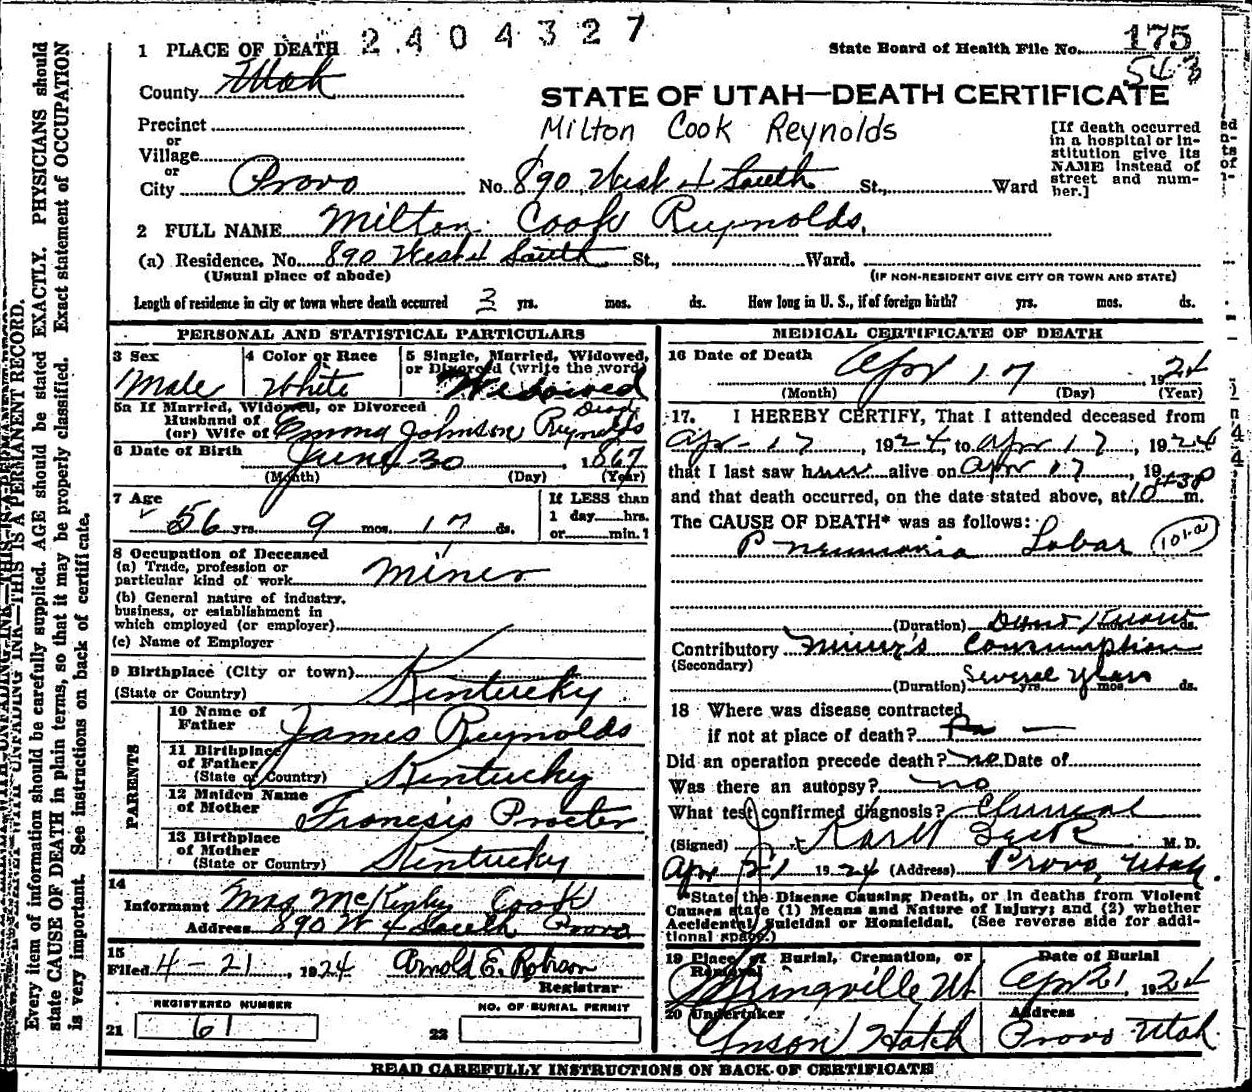 2404327
1 PLACE OF DEATH
State Board of Health File No. 175
543
County Utah
STATE OF UTAH—DEATH CERTIFICATE
Milton Cook Reynolds
Precinct
or
Village
or
City Provo No. 890 West 4 South St., Ward
[If death occurred in a hospital or in-
stitution give its
NAME instead of
street and num-
ber.]
2 FULL NAME Milton Cook Reynolds.
(a) Residence. No. 890 West 4 South St., Ward.
(Usual place of abode) (IF NON-RESIDENT GIVE CITY OR TOWN AND STATE)
Length of residence in city or town where death occurred 3 yrs. mos. ds. How long in U. S., if of foreign birth? yrs. mos. ds.
PERSONAL AND STATISTICAL PARTICULARS
3 Sex 4 Color or Race 5 Single, Married, Widowed,
or Divorced (write the word)
Male White Widowed
5a If Married, Widowed, or Divorced
Husband of Dead
(or) Wife of Emma Johnson Reynolds
6 Date of Birth June 30, 1867
(Month) (Day) (Year)
7 Age If LESS than
56 yrs. 9 mos. 17 ds. 1 day hrs.
or min.?
8 Occupation of Deceased
(a) Trade, profession or
particular kind of work Miner
(b) General nature of industry,
business, or establishment in
which employed (or employer)
(c) Name of Employer
9 Birthplace (City or town)
(State or Country) Kentucky
PARENTS
10 Name of
Father James Reynolds
11 Birthplace
of Father
(State or Country) Kentucky
12 Maiden Name
of Mother Francis Procter
13 Birthplace
of Mother
(State or Country) Kentucky
14
Informant Mrs McKinley Cook
Address 890 W 4 South Provo
15
Filed 4-21, 1924 Arnold E. Robison
Registrar
REGISTERED NUMBER NO. OF BURIAL PERMIT
21 61 22
MEDICAL CERTIFICATE OF DEATH
16 Date of Death Apr 17 1924
(Month) (Day) (Year)
17. I HEREBY CERTIFY, That I attended deceased from
Apr-17, 1924, to Apr 17, 1924
that I last saw him alive on Apr 17, 19
and that death occurred, on the date stated above, at 10 43P m.
The CAUSE OF DEATH* was as follows:
Pneumonia Lobar 101-a
(Duration) mos. ds.
Contributory Miner's Consumption
(Secondary)
Several years
(Duration) yrs. mos. ds.
18 Where was disease contracted
if not at place of death?
Did an operation precede death? no Date of
Was there an autopsy? no
What test confirmed diagnosis? Clinical
(Signed) J. Karl Beck M. D.
Apr 21 1924 (Address) Provo, Utah.
*State the Disease Causing Death, or in deaths from Violent
Causes state (1) Means and Nature of Injury; and (2) whether
Accidental, Suicidal or Homicidal. (See reverse side for addi-
tional space.)
19 Place of Burial, Cremation, or
Removal Date of Burial
Springville Ut Apr 21, 1924
20 Undertaker Address
Hatch Provo Utah
READ CAREFULLY INSTRUCTIONS ON BACK OF CERTIFICATE
THIS IS A PERMANENT RECORD.
Every item of information should be carefully supplied. AGE should be stated EXACTLY. PHYSICIANS should
state CAUSE OF DEATH in plain terms, so that it may be properly classified. Exact statement of OCCUPATION
is very important. See instructions on back of certificate.